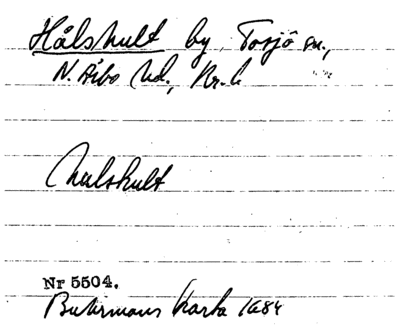 Hålshult by, Tosjö sn.,
N. Åsbo hd., Kr. l.
Hulshult
Nr 5504.
Buhrmans karta 1684